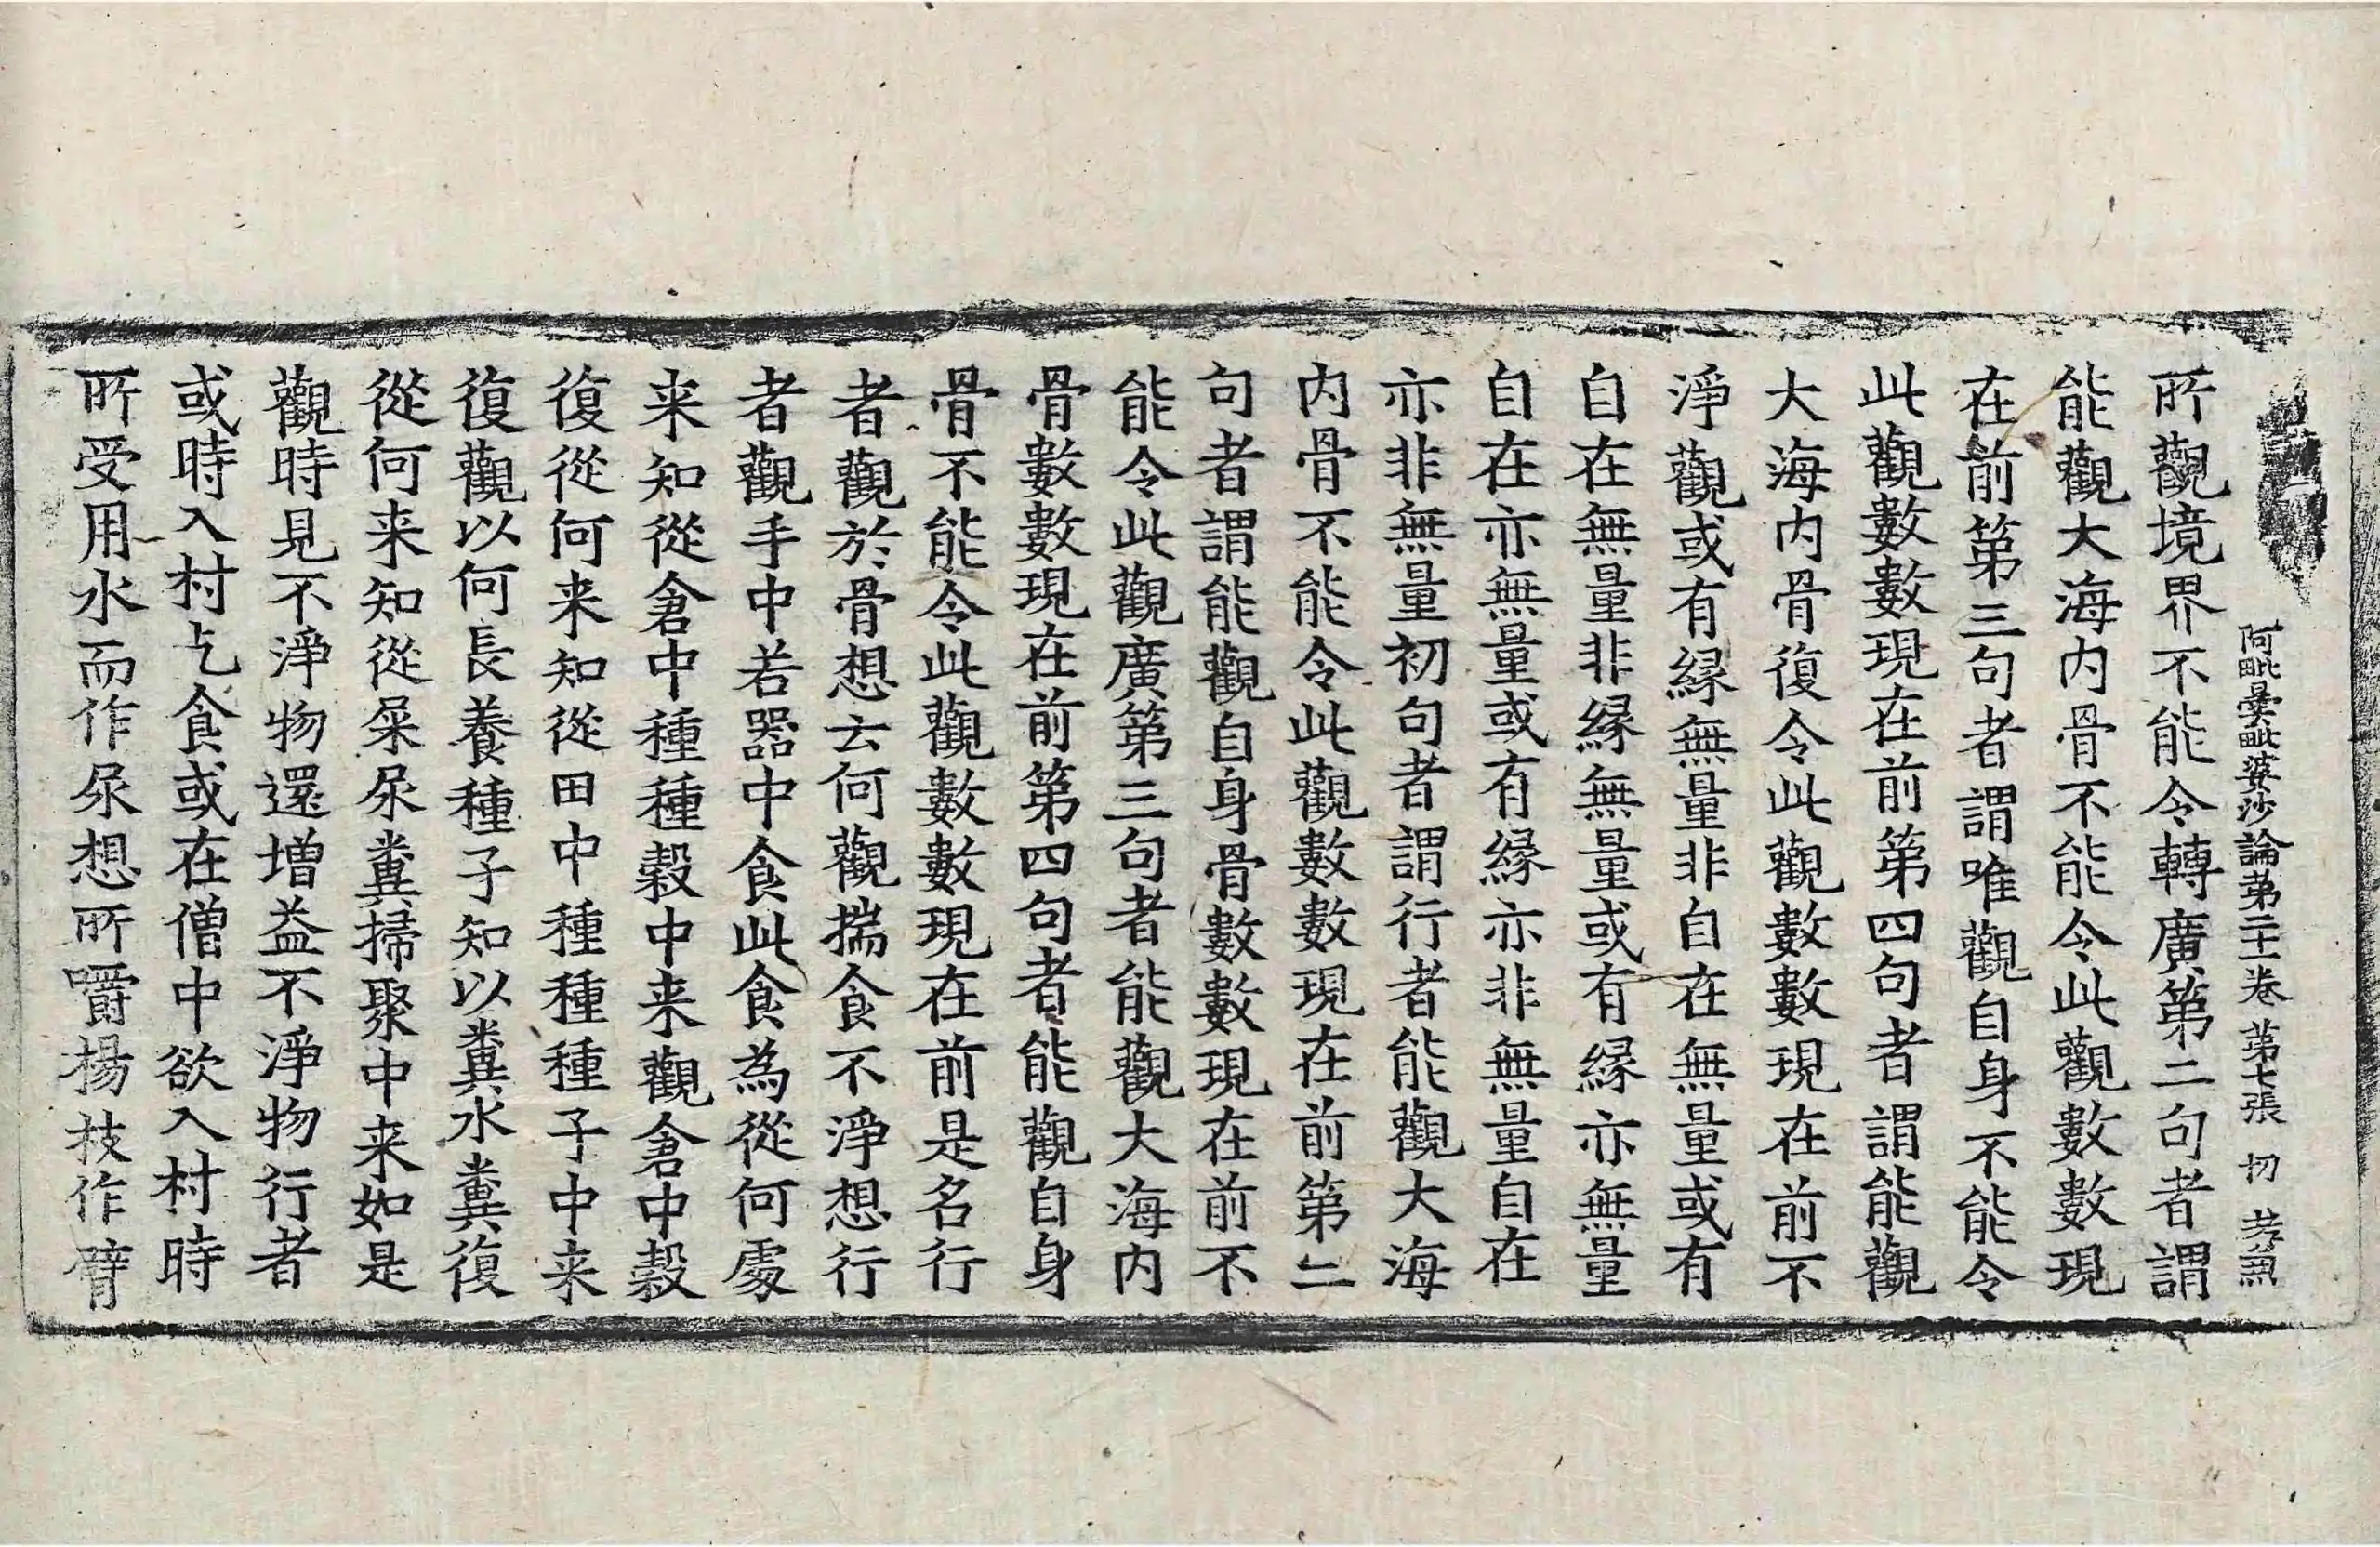 阿毗曇毗婆沙論第二十一卷 第七張 切
所觀境界不能令轉廣第二句者謂
能觀大海内骨不能令此觀數數現
在前第三句者謂唯觀自身不能令
此觀數數現在前第四句者謂能觀
大海内骨復令此觀數數現在前不
淨觀或有縁無量非自在無量或有
自在無量非縁無量或有縁亦無量
自在亦無量或有縁亦非無量自在
亦非無量初句者謂行者能觀大海
内骨不能令此觀數數現在前第二
句者謂能觀自身骨數數現在前不
能令此觀廣第三句者能觀大海内
骨數數現在前第四句者能觀自身
骨不能令此觀數數現在前是名行
者觀於骨想云何觀揣食不淨想行
者觀手中若器中食此食為從何處
来知從倉中種種穀中来觀倉中穀
復從何来知從田中種種種子中来
復觀以何長養種子知以糞水糞復
從何来知從屎尿糞掃聚中来如是
觀時見不淨物還增益不淨物行者
或時入村乞食或在僧中欲入村時
所受用水而作尿想所嚼楊枝作臂